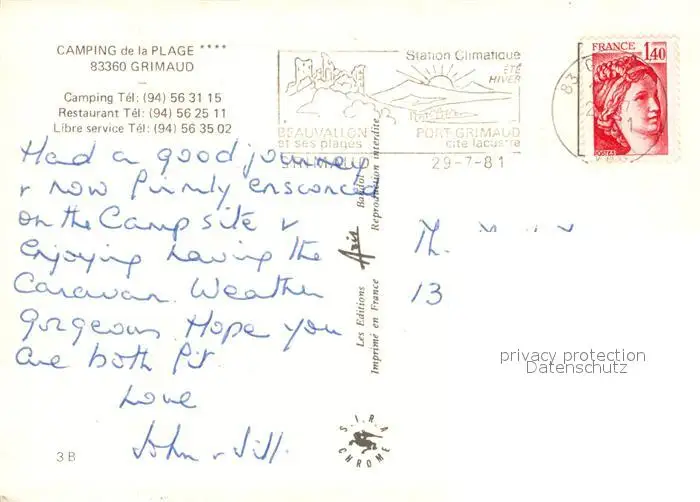 CAMPING de la PLAGE ****
83360 GRIMAUD
Camping Tél: (94) 56 31 15
Restaurant Tél: (94) 56 25 11
Libre service Tél: (94) 56 35 02
Station Climatique
ÉTÉ
HIVER
BEAUVALLON
et ses plages
GRIMAUD
PORT-GRIMAUD
cité lacustre
29-7-81
83
FRANCE
1,40
POSTES
Had a good journey
& now firmly ensconced
on the Camp site &
enjoying having the
Caravan. Weather
gorgeous. Hope you
are both fit
Love
John & Jill.
13
Les Editions Aris
Imprimé en France
Reproduction interdite
SIRA
CHROME
3 B
privacy protection
Datenschutz